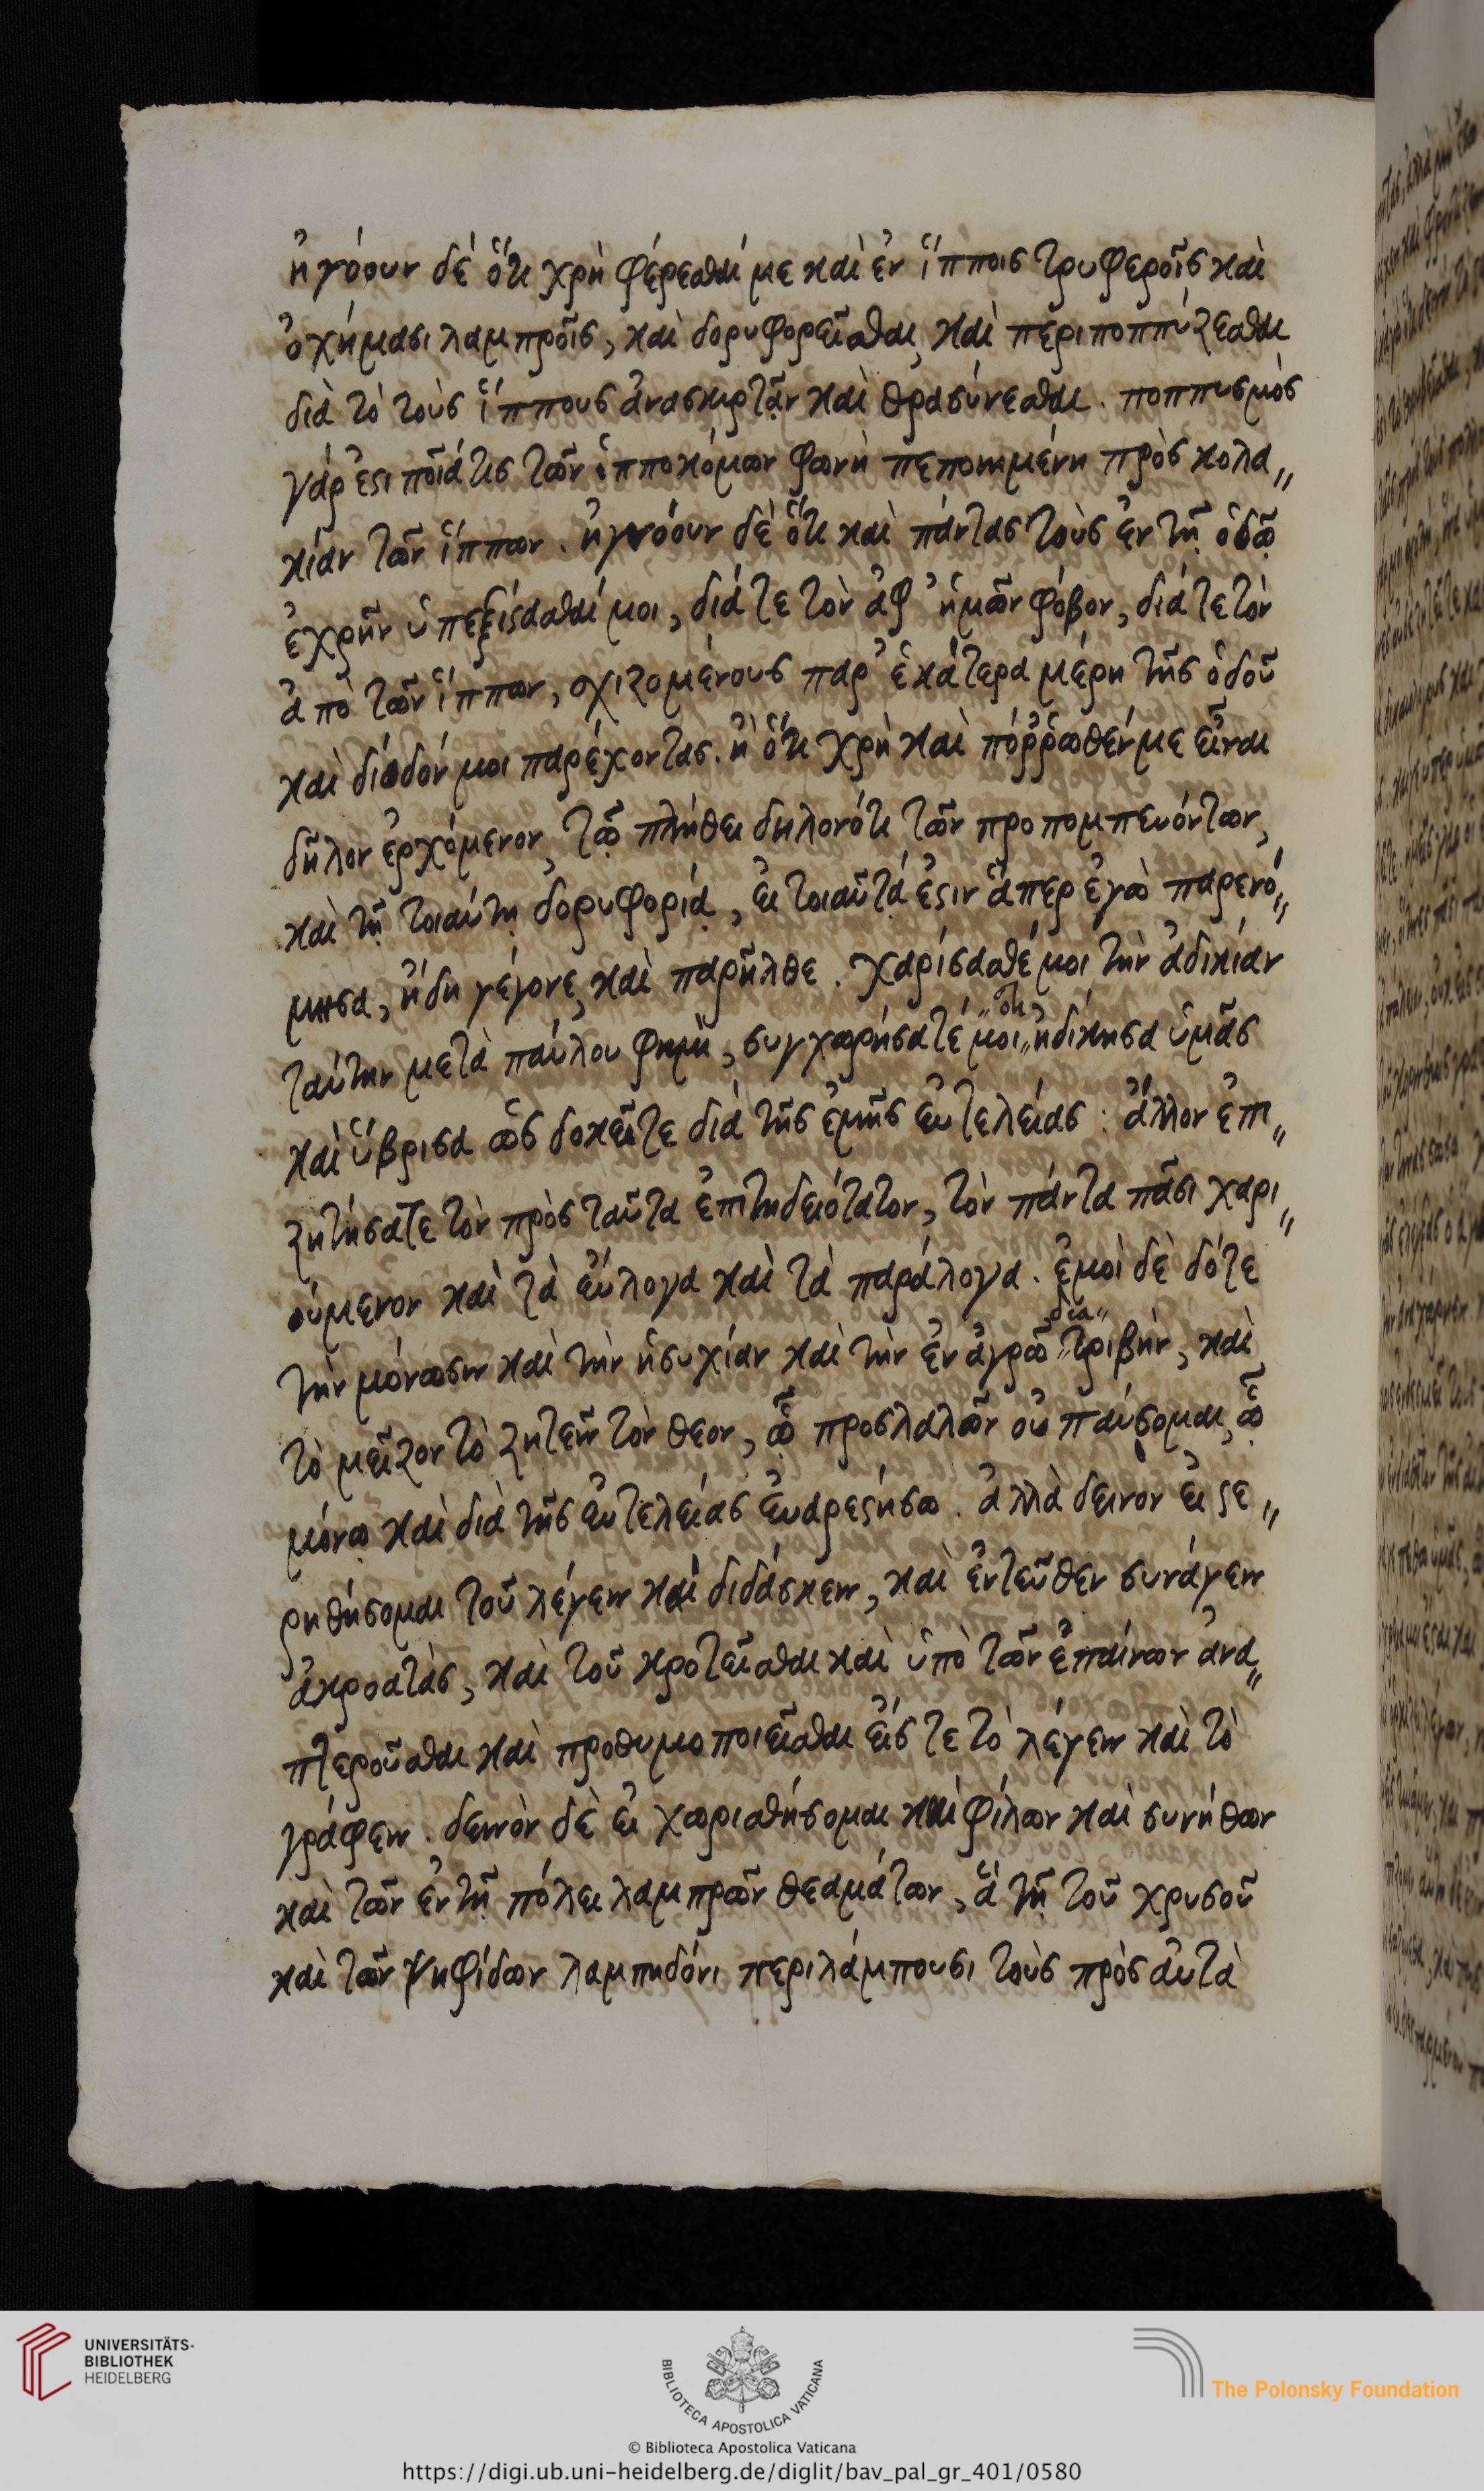 ἠγνόουν δὲ ὅτι χρὴ φέρεσθαί με καὶ ἐν ἵπποις τρυφεροῖς καὶ
ὀχήμασι λαμπροῖς, καὶ δορυφορεῖσθαι, καὶ περιποππύζεσθαι
διὰ τὸ τοὺς ἵππους ἀνασκιρτᾷν καὶ θρασύνεσθαι. ποππυσμὸς
γάρ ἐστι ποῖά τις τῶν ἱπποκόμων φωνὴ πεποιημένη πρὸς κολα„
κίαν τῶν ἵππων. ἠγνόουν δὲ ὅτι καὶ πάντας τοὺς ἐν τῇ ὁδῷ
ἐχρῆν ὑπεξίστασθαί μοι, διά τε τὸν ἀφ' ἡμῶν φόβον, διά τε τὸν
ἀπὸ τῶν ἵππων, σχιζομένους παρ' ἑκάτερα μέρη τῆς ὁδοῦ
καὶ δίοδόν μοι παρέχοντας. ἢ ὅτι χρὴ καὶ πόῤῥωθέν με εἶναι
δῆλον ἐρχόμενον, τῷ πλήθει δηλονότι τῶν προπομπευόντων,
καὶ τῇ τοιαύτῃ δορυφορίᾳ, εἰ τοιαῦτά ἐστιν ἅπερ ἐγὼ παρενό„
μησα, ἤδη γέγονε, καὶ παρῆλθε. χαρίσασθέ μοι τὴν ἀδικίαν
ταύτην μετὰ παύλου φημὶ, συγχωρήσατέ μοι „ὅτι„ ἠδίκησα ὑμᾶς
καὶ ὕβρισα ὡς δοκεῖτε διὰ τῆς ἐμῆς εὐτελείας: ἄλλον ἐπι„
ζητήσατε τὸν πρὸς ταῦτα ἐπιτηδειότατον, τὸν πάντα πᾶσι χαρι„
ούμενον καὶ τὰ εὔλογα καὶ τὰ παράλογα. ἐμοὶ δὲ δότε
τὴν μόνωσιν καὶ τὴν ἡσυχίαν καὶ τὴν ἐν ἀγρῷ „δια„τριβὴν, καὶ
τὸ μεῖζον τὸ ζητεῖν τὸν θεον, ᾧ προσλαλῶν οὐ παύσομαι, ᾧ
μόνῳ καὶ διὰ τῆς εὐτελείας εὐαρεστήσω. ἀλλὰ δεινὸν εἰ στε„
ρηθήσομαι τοῦ λέγειν καὶ διδάσκειν, καὶ ἐντεῦθεν συνάγειν
ἀκροατὰς, καὶ τοῦ κροτεῖσθαι καὶ ὑπὸ τῶν ἐπαίνων ἀνα„
πτεροῦσθαι καὶ προθυμοποιεῖσθαι εἴς τε τὸ λέγειν καὶ τὸ
γράφειν. δεινὸν δὲ εἰ χωρισθήσομαι καὶ φίλων καὶ συνήθων
καὶ τῶν ἐν τῇ πόλει λαμπρῶν θεαμάτων, ἃ τῇ τοῦ χρυσοῦ
καὶ τῶν ψηφίδων λαμπηδόνι περιλάμπουσι τοὺς πρὸς αὐτὰ
UNIVERSITÄTS-
BIBLIOTHEK
HEIDELBERG
BIBLIOTECA APOSTOLICA VATICANA
The Polonsky Foundation
© Biblioteca Apostolica Vaticana
https://digi.ub.uni-heidelberg.de/diglit/bav_pal_gr_401/0580